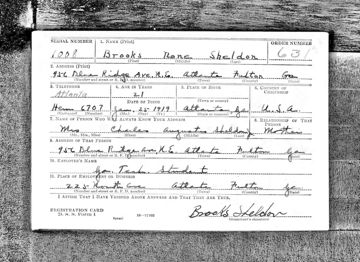 SERIAL NUMBER 1. NAME (Print) ORDER NUMBER
1008 Brooks None Sheldon 631
2. ADDRESS (Print)
956 Blue Ridge Ave. N.E. Atlanta Fulton Ga
3. TELEPHONE 4. AGE IN YEARS 5. PLACE OF BIRTH 6. COUNTRY OF CITIZENSHIP
Atlanta 21
DATE OF BIRTH
Hem 6707 Jan. 25 1919 Atlanta Ga U.S.A.
7. NAME OF PERSON WHO WILL ALWAYS KNOW YOUR ADDRESS 8. RELATIONSHIP OF THAT PERSON
Mrs Charles Augusta Sheldon Mother
9. ADDRESS OF THAT PERSON
956 Blue Ridge Ave N.E. Atlanta Fulton Ga
10. EMPLOYER'S NAME
Ga. Tech. Student
11. PLACE OF EMPLOYMENT OR BUSINESS
225 North Ave Atlanta Fulton Ga
I AFFIRM THAT I HAVE VERIFIED ABOVE ANSWERS AND THAT THEY ARE TRUE.
REGISTRATION CARD
D. S. S. FORM 1 Brooks Sheldon